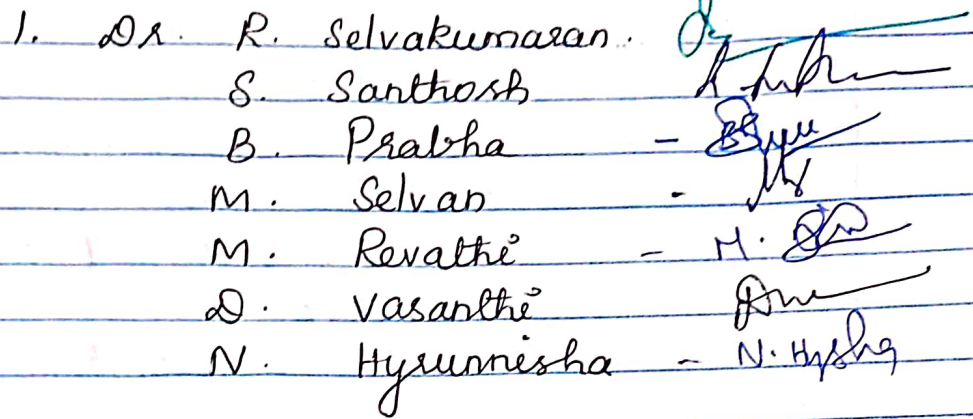 1. Dr. R. Selvakumaran.
S. Santhosh
B. Prabha -
M. Selvan -
M. Revathi - M.
D. Vasanthi
N. Hyrunnisha - N. Hysha